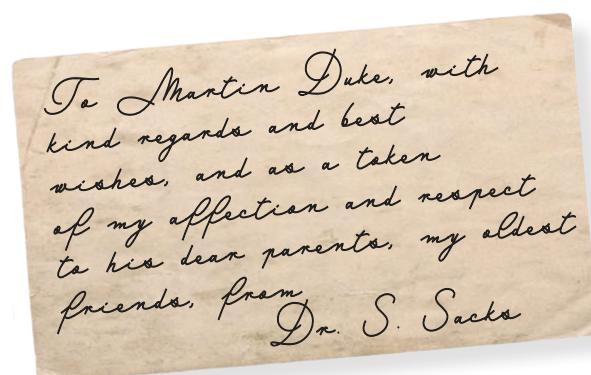 To Martin Duke, with
kind regards and best
wishes, and as a token
of my affection and respect
to his dear parents, my oldest
friends, from
Dr. S. Sacks